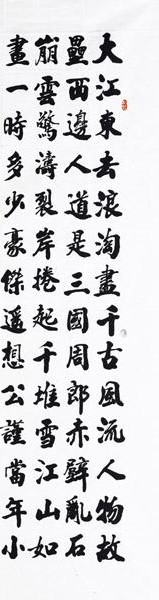 大江東去浪淘盡千古風流人物故
壘西邊人道是三國周郎赤壁亂石
崩雲驚濤裂岸捲起千堆雪江山如
畫一時多少豪傑遙想公謹當年小